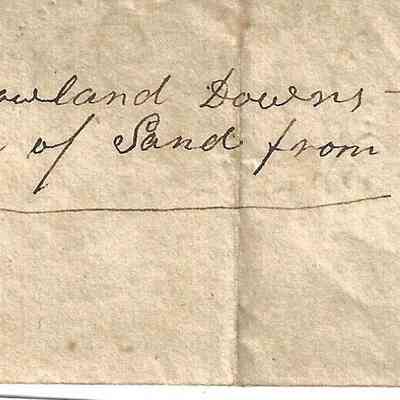 owland Downs -
of Sand from